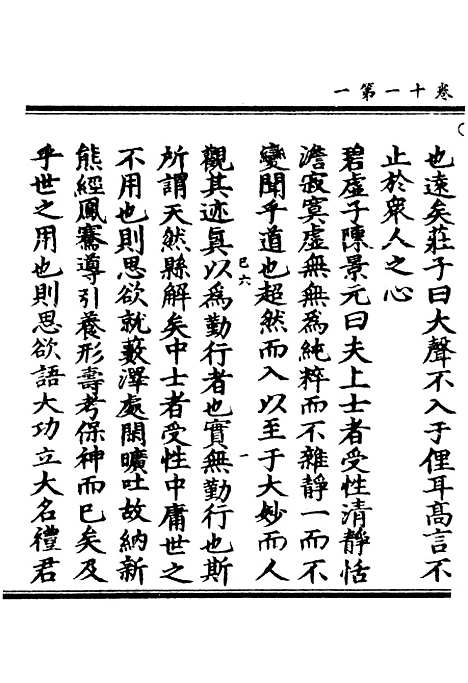 卷十一第一
也遠矣莊子曰大聲不入于俚耳高言不
止於衆人之心
碧虛子陳景元曰夫上士者受性清靜恬
澹寂寞虛無無爲純粹而不雜靜一而不
變聞乎道也超然而入以至于大妙而人
已六
一
觀其迹真以爲勤行者也實無勤行也斯
所謂天然縣解矣中士者受性中庸世之
不用也則思欲就藪澤處閑曠吐故納新
熊經鳳騫導引養形壽考保神而已矣及
乎世之用也則思欲語大功立大名禮君